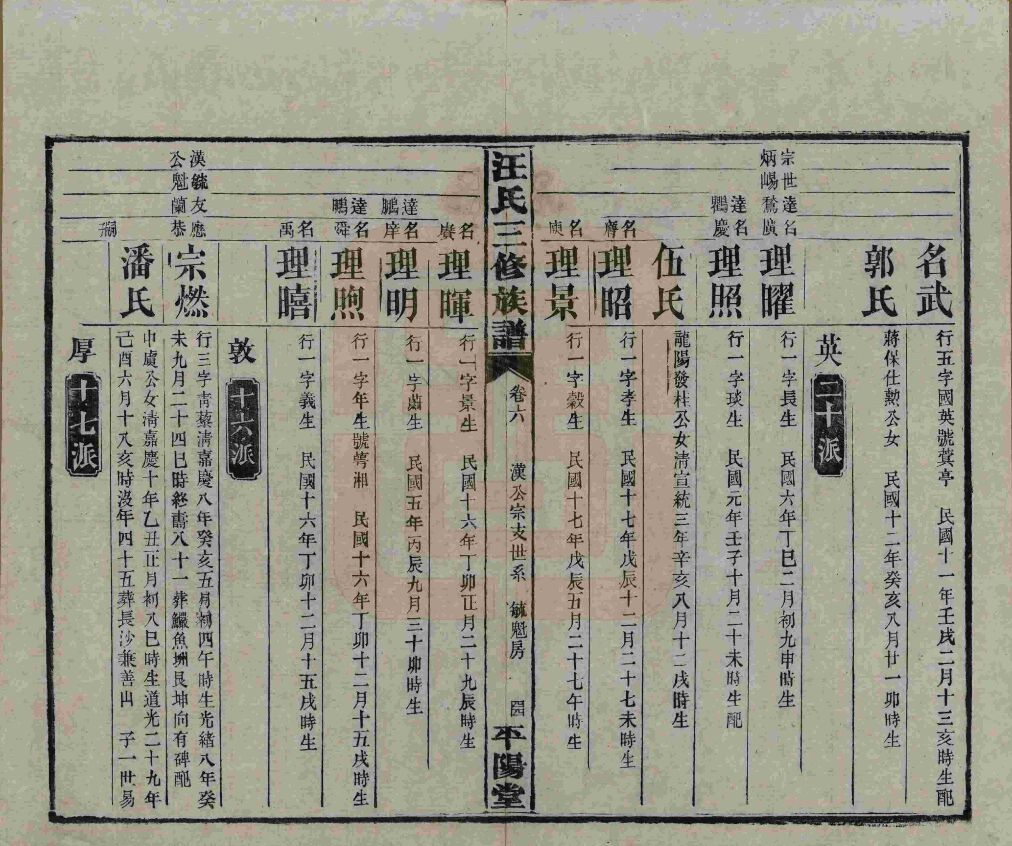 名武
行五字國英號蓂亭　民國十一年壬戌二月十三亥時生配
郭氏
蔣保仕勲公女　民國十二年癸亥八月廿一卯時生
英
二十派
宗炳
世錫
達鶩
名廣
理曜
行一字長生　民國六年丁巳二月初九申時生
達鸚
名慶
理照
行一字琰生　民國元年壬子十月二十未時生配
伍氏
龍陽發桂公女清宣統三年辛亥八月十二戌時生
名
理昭
行一字孝生　民國十七年戊辰十二月二十七未時生
名庾
理景
行一字穀生　民國十七年戊辰五月二十七午時生
汪氏三修族譜
卷六
漢公宗支世系　毓魁房
四
平陽堂
名賡
理暉
行一字景生　民國十六年丁卯正月二十九辰時生
達鵬
名庠
理明
行一字繭生　民國五年丙辰九月三十卯時生
達鵬
名舜
理煦
行一字年生號蕚湘　民國十六年丁卯十二月十五戌時生
名禹
理暿
行一字義生　民國十六年丁卯十二月十五戌時生
敦
十六派
漢公
毓魁
友蘭
應恭
宗燃
行三字靑藜清嘉慶八年癸亥五月初四午時生光緒八年癸
未九月二十四巳時終壽八十一葬鱺魚洲艮坤向有碑配
嗣
潘氏
申虞公女清嘉慶十年乙丑正月初八巳時生道光二十九年
己酉六月十八亥時沒年四十五葬長沙兼善山　子一世易
厚
十七派